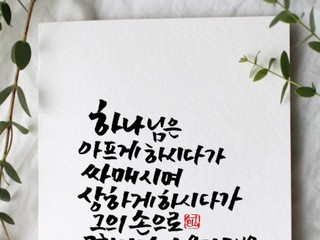 하나님은
아프게 하시다가
싸매시며
상하게 하시다가
그의 손으로